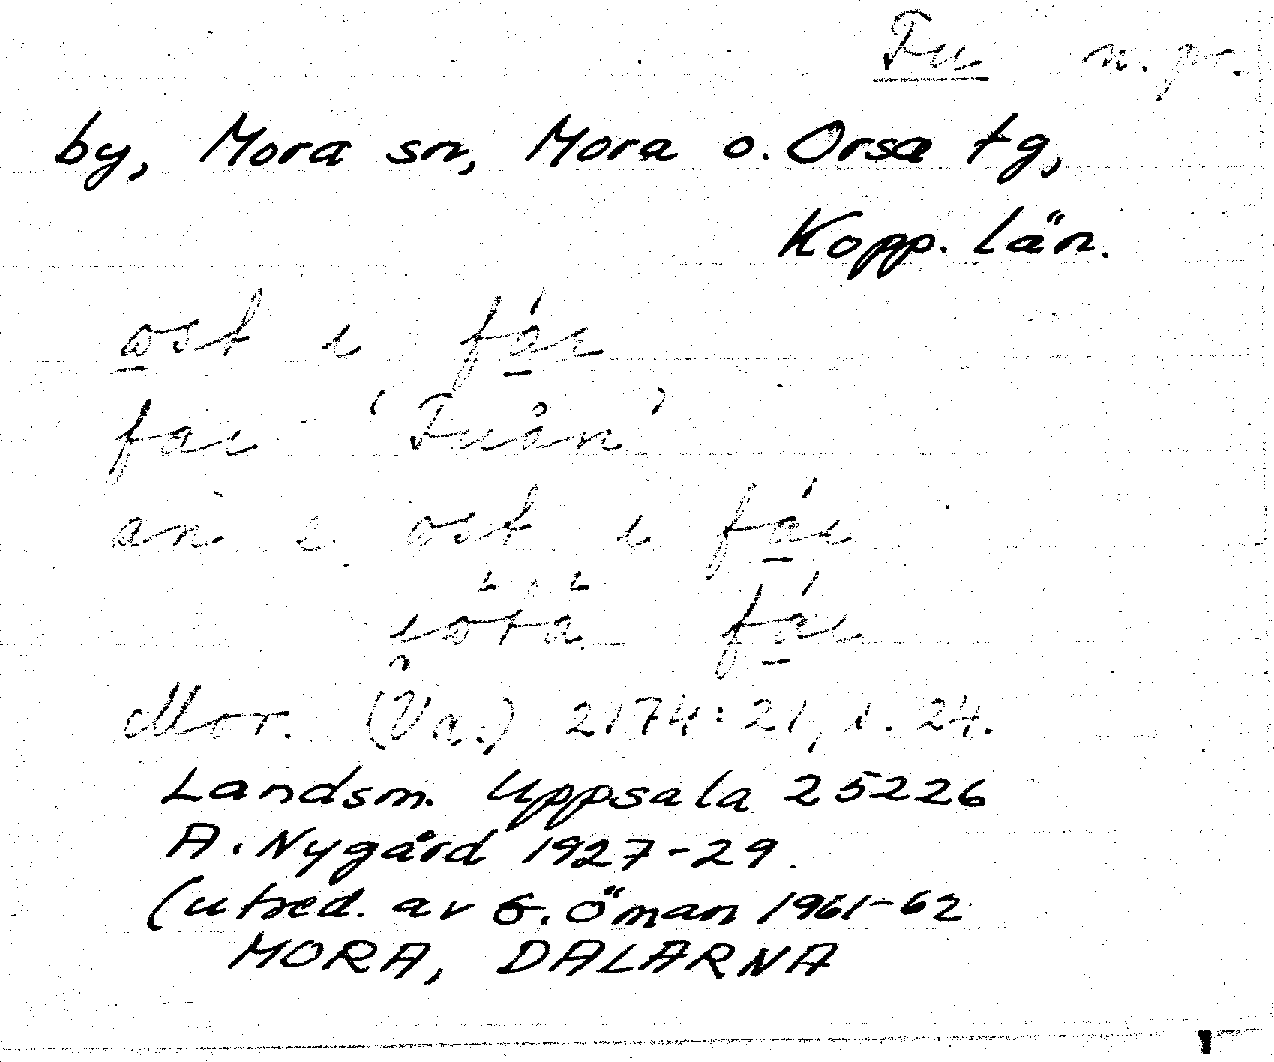 Fu n. pr.
by, Mora sn, Mora o. Orsa tg,
Kopp. län.
ost i
'Fuån'
an e ost i
Mor. (Va.) 2174:21, s. 24.
Landsm. Uppsala 25226
A. Nygård 1927-29.
(utred. av G. Öman 1961-62
MORA, DALARNA